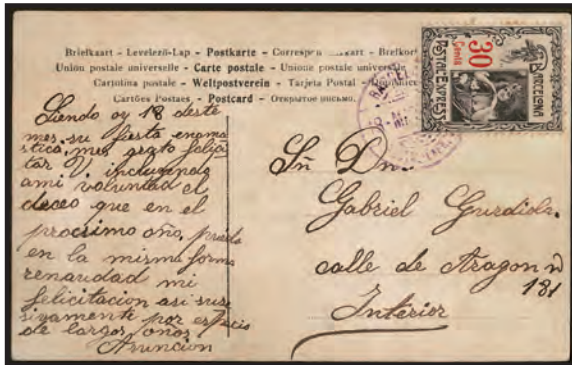 Briefkaart - Levelező-Lap - Postkarte - Brefkort
Union postale universelle - Carte postale - Unione postale universale
Cartolina postale - Weltpostverein - Tarjeta Postal
Cartões Postaes - Postcard - Открытое письмо.
BARCELONA
POSTAL EXPRESS
30
Cents
Siendo oy 18 deste
mes su fiesta enoma
stica, mes grato felici
tar V. incluyendo
ami voluntad el
deceo que en el
procsimo año, pueda
en la misma forma
renaudad mi
felicitacion asi suse
sivamente por espacio
de largos años
Asuncion
Sñ Dn.
Gabriel Gurdiola.
calle de Aragon n
181
Interior